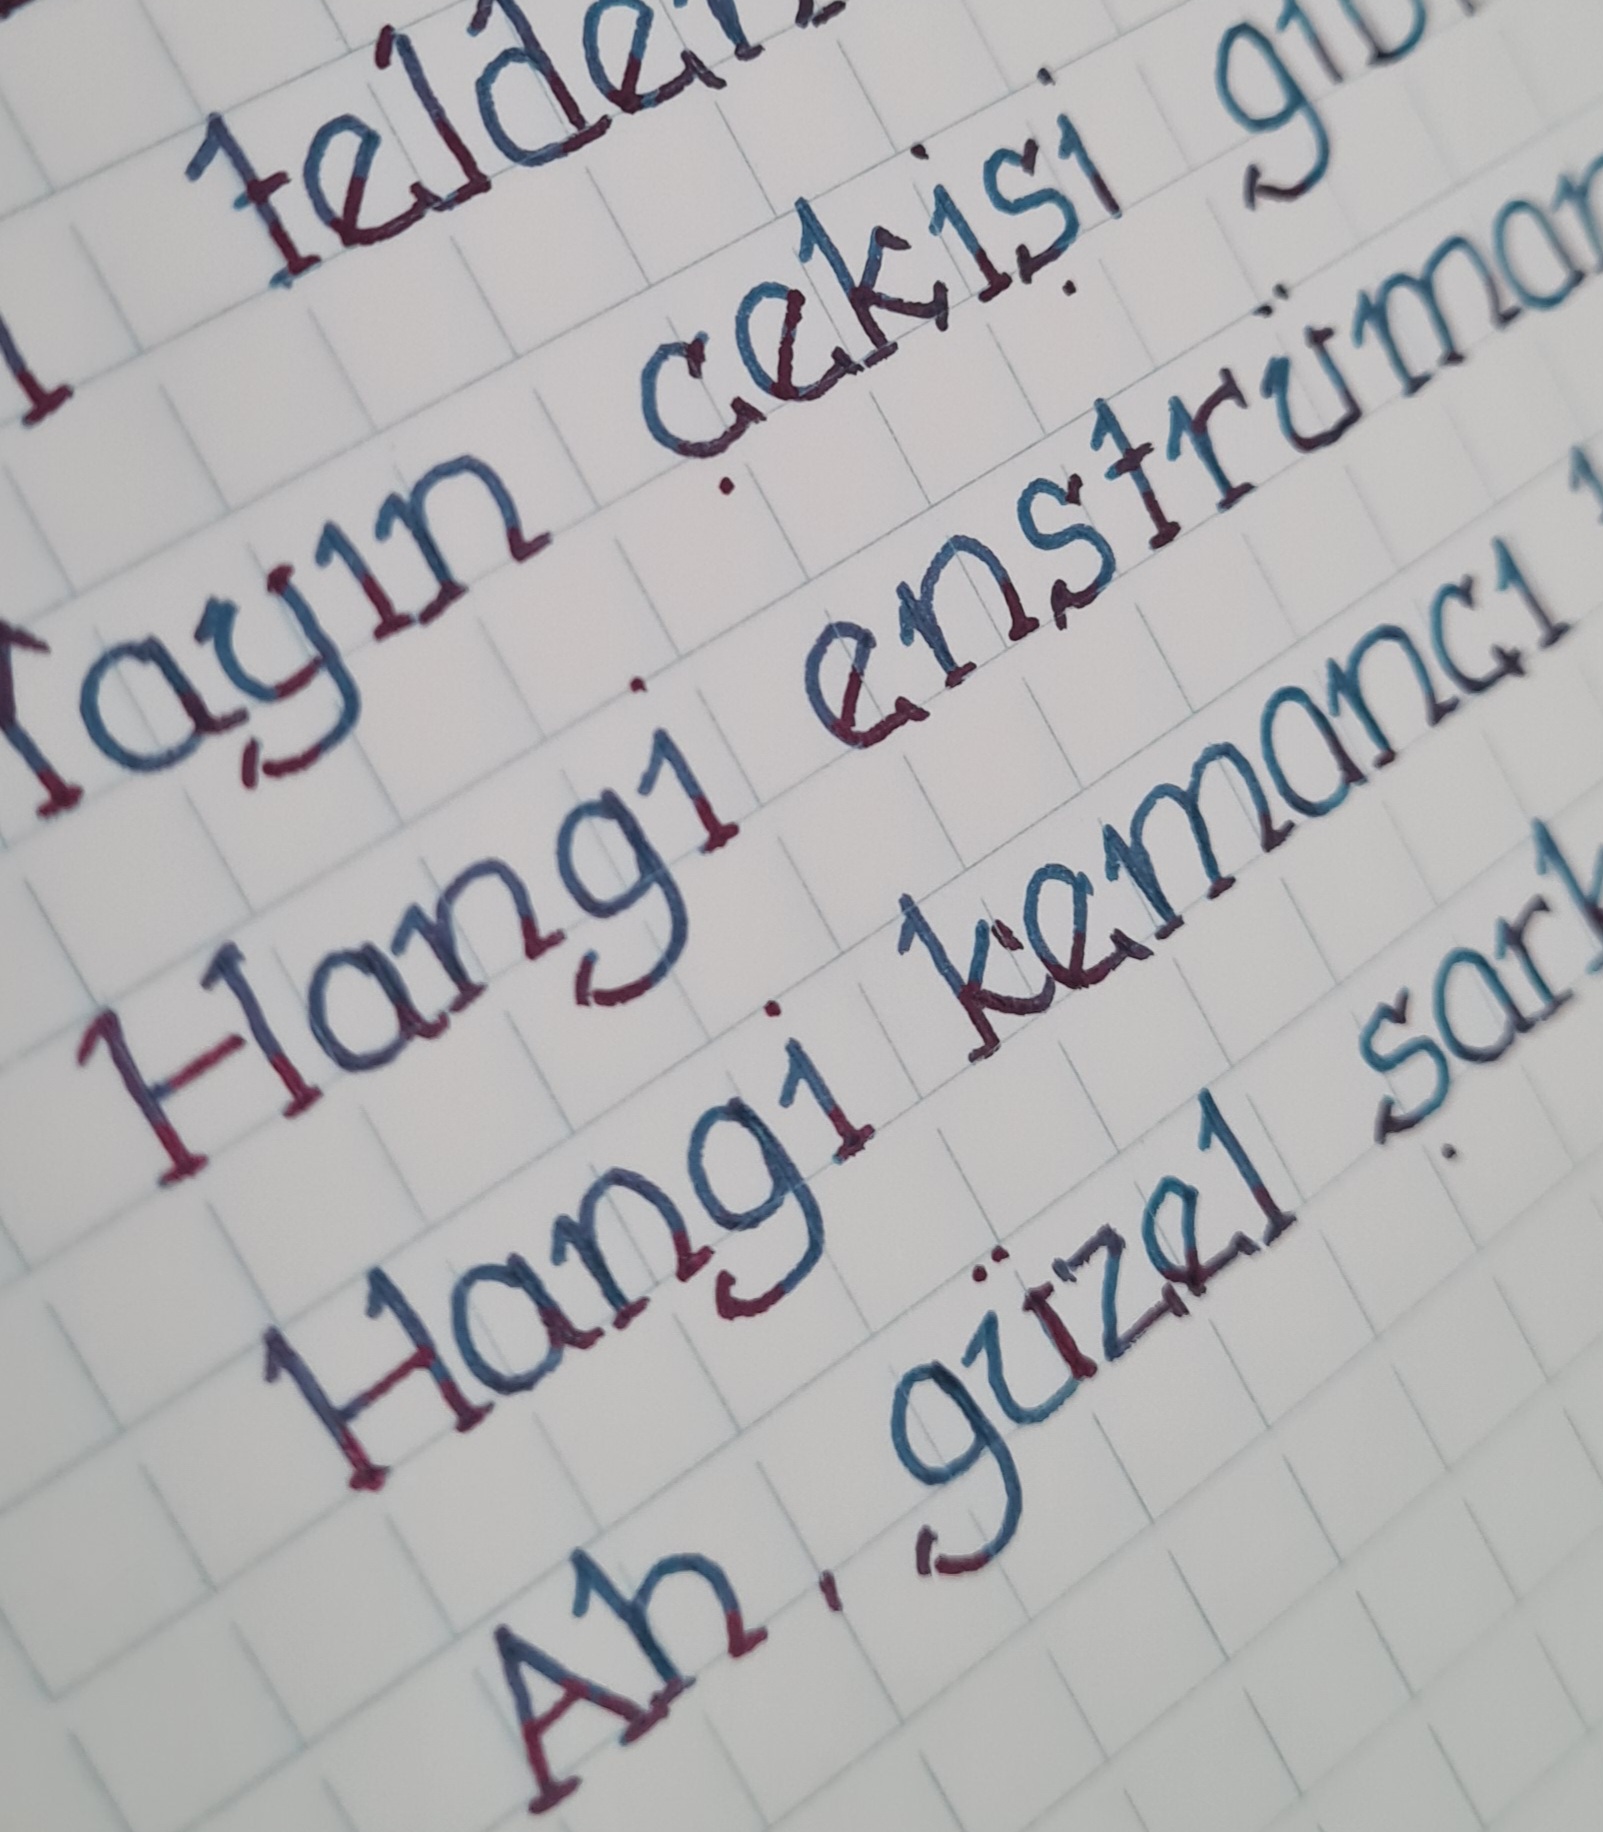 telden
Yayın çekişi gibi
Hangi enstrüman
Hangi kemancı
Ah, güzel şark